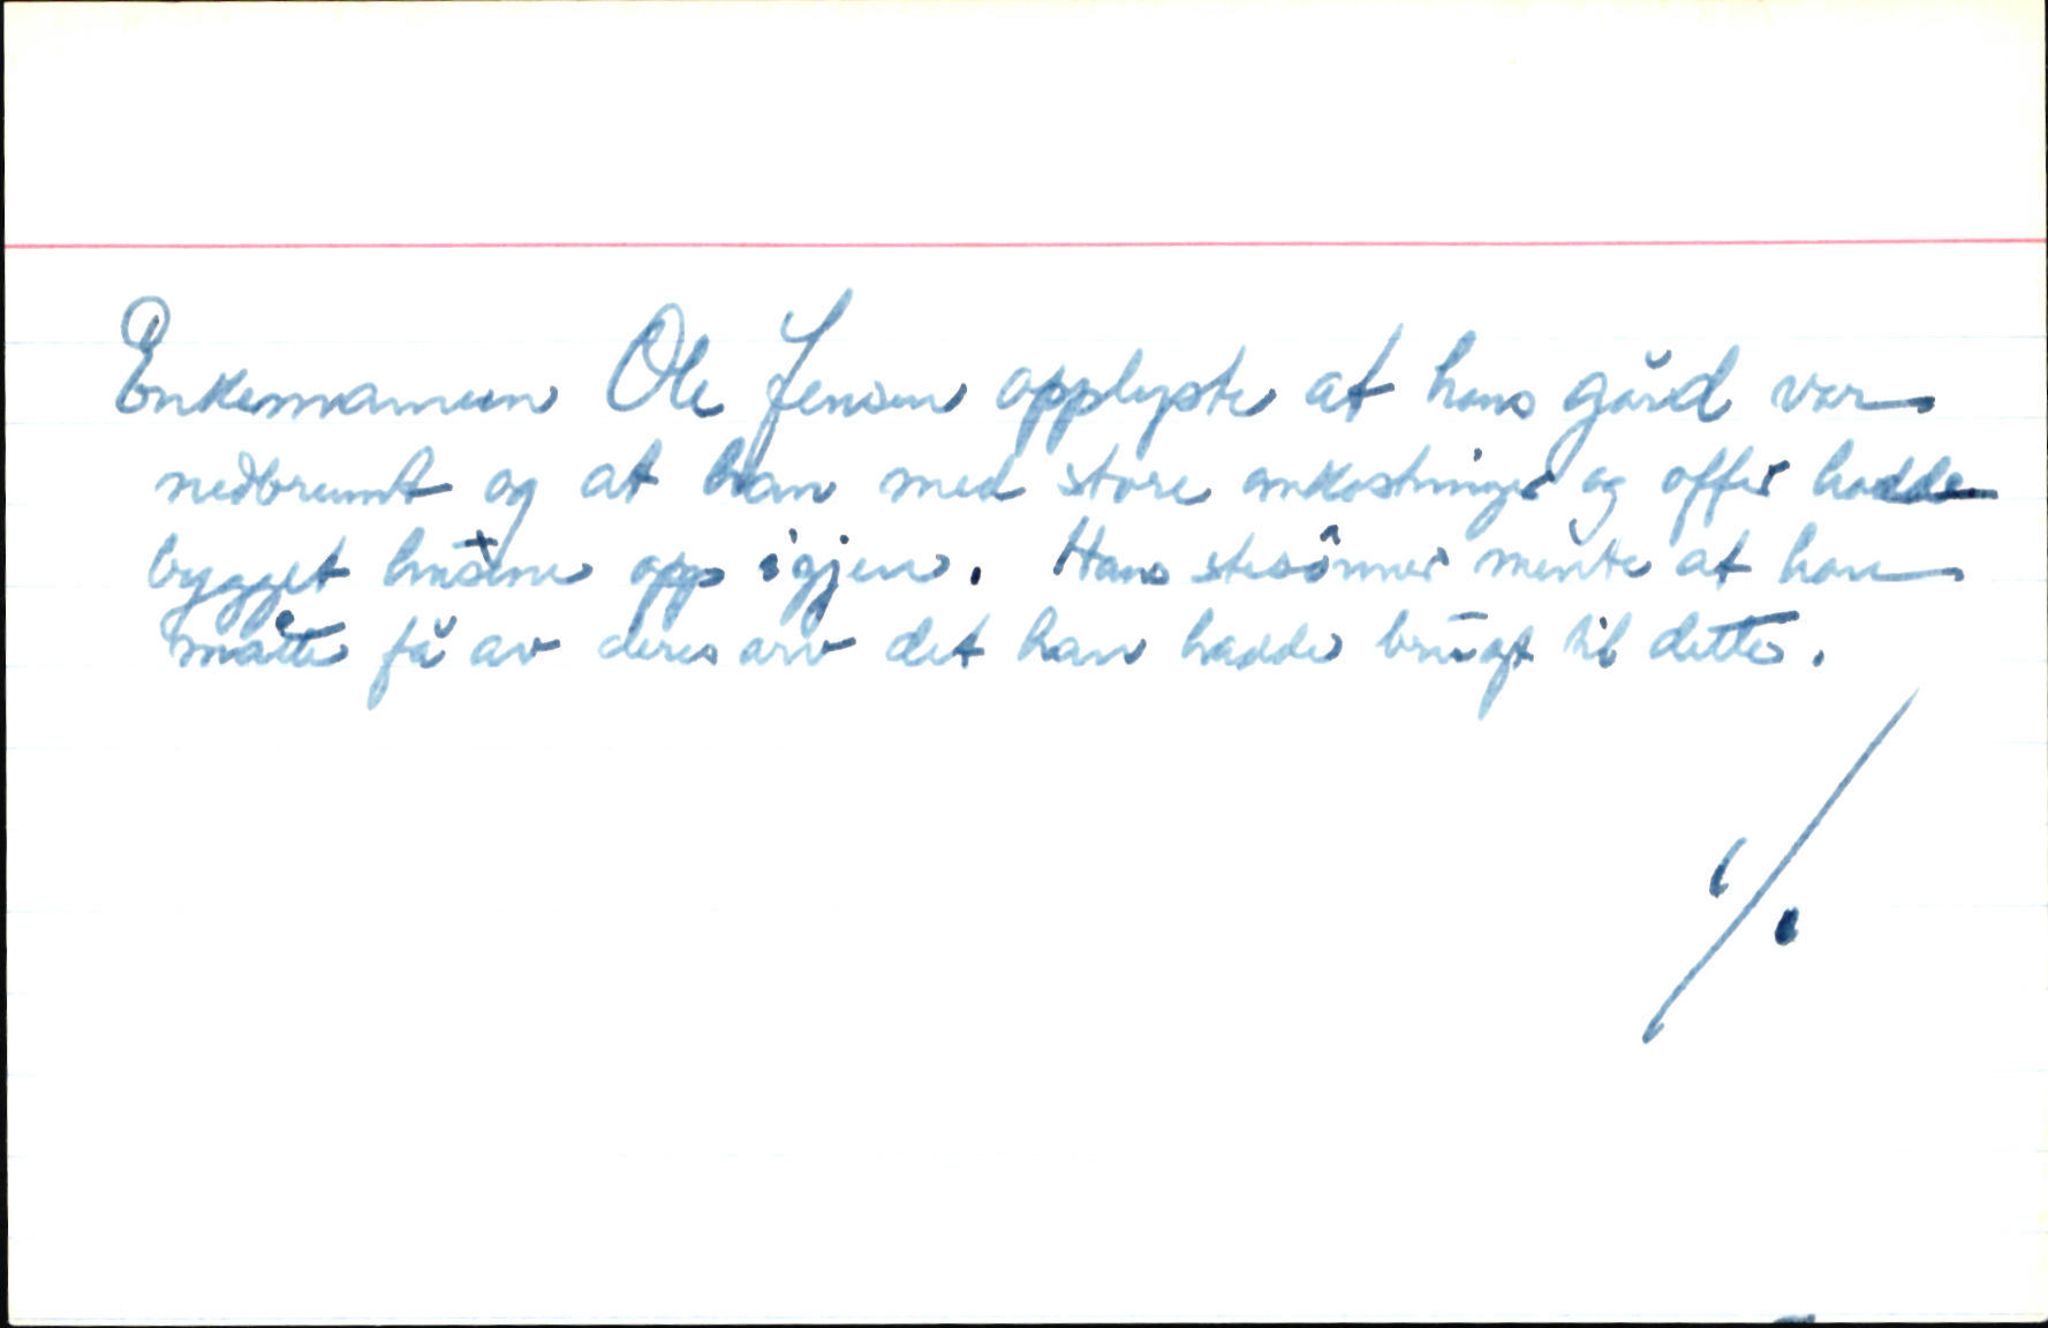 Enkemannen Ole Jensen opplyste at hans gård var
nedbrennt og at han med store omkostninger og offer hadde
bygget husene opp igjen. Hans stesönner mente at han
måtte få av deres arv det han hadde brugt til dette.
·/.